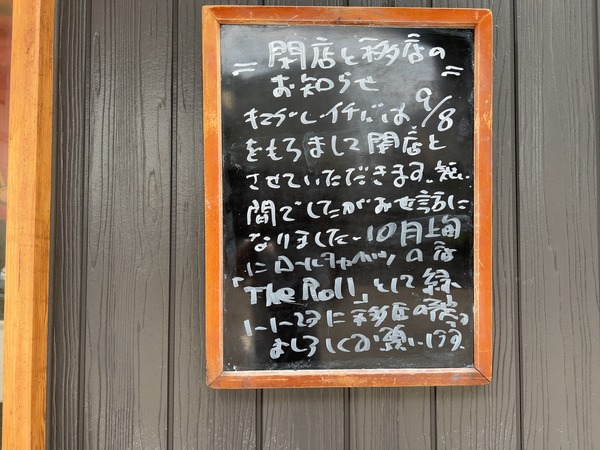 閉店と移店の
お知らせ
キマグレイチバは 9/8
をもちまして閉店と
させていただきます。短い
間でしたがお世話に
なりました。10月上旬
にロールキャベツの店
「The Roll」として緑
1-1-23に移店の際
よろしくお願います